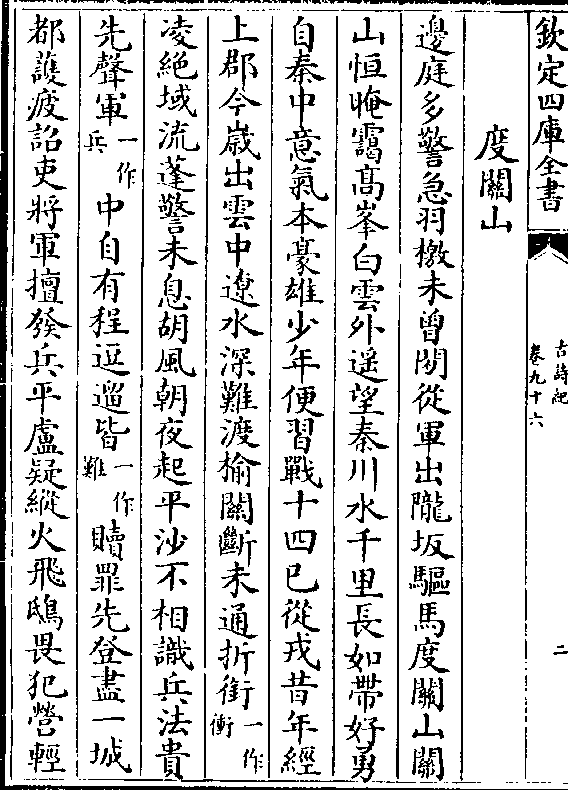 欽定四庫全書
古詩紀
卷九十六
二
度關山
邊庭多警急羽檄未曾閒從軍出隴坂驅馬度關山關
山恒晻靄高峯白雲外遥望秦川水千里長如帶好勇
自秦中意氣本豪雄少年便習戰十四已從戎昔年經
上郡今歲出雲中遼水深難渡榆關斷未通折銜一作衝
凌絶域流蓬警未息胡風朝夜起平沙不相識兵法貴
先聲軍一作兵中自有程逗遛皆一作難贖罪先登盡一城
都䕶疲詔吏將軍擅發兵平盧疑縱火飛鴟畏犯營輕